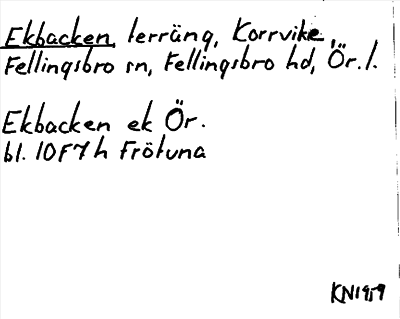 Ekbacken, terräng, Korrvike,
Fellingsbro sn, Fellingsbro hd, Ör. l.
Ekbacken ek Ör.
bl. 10F7h Frötuna
KN1959